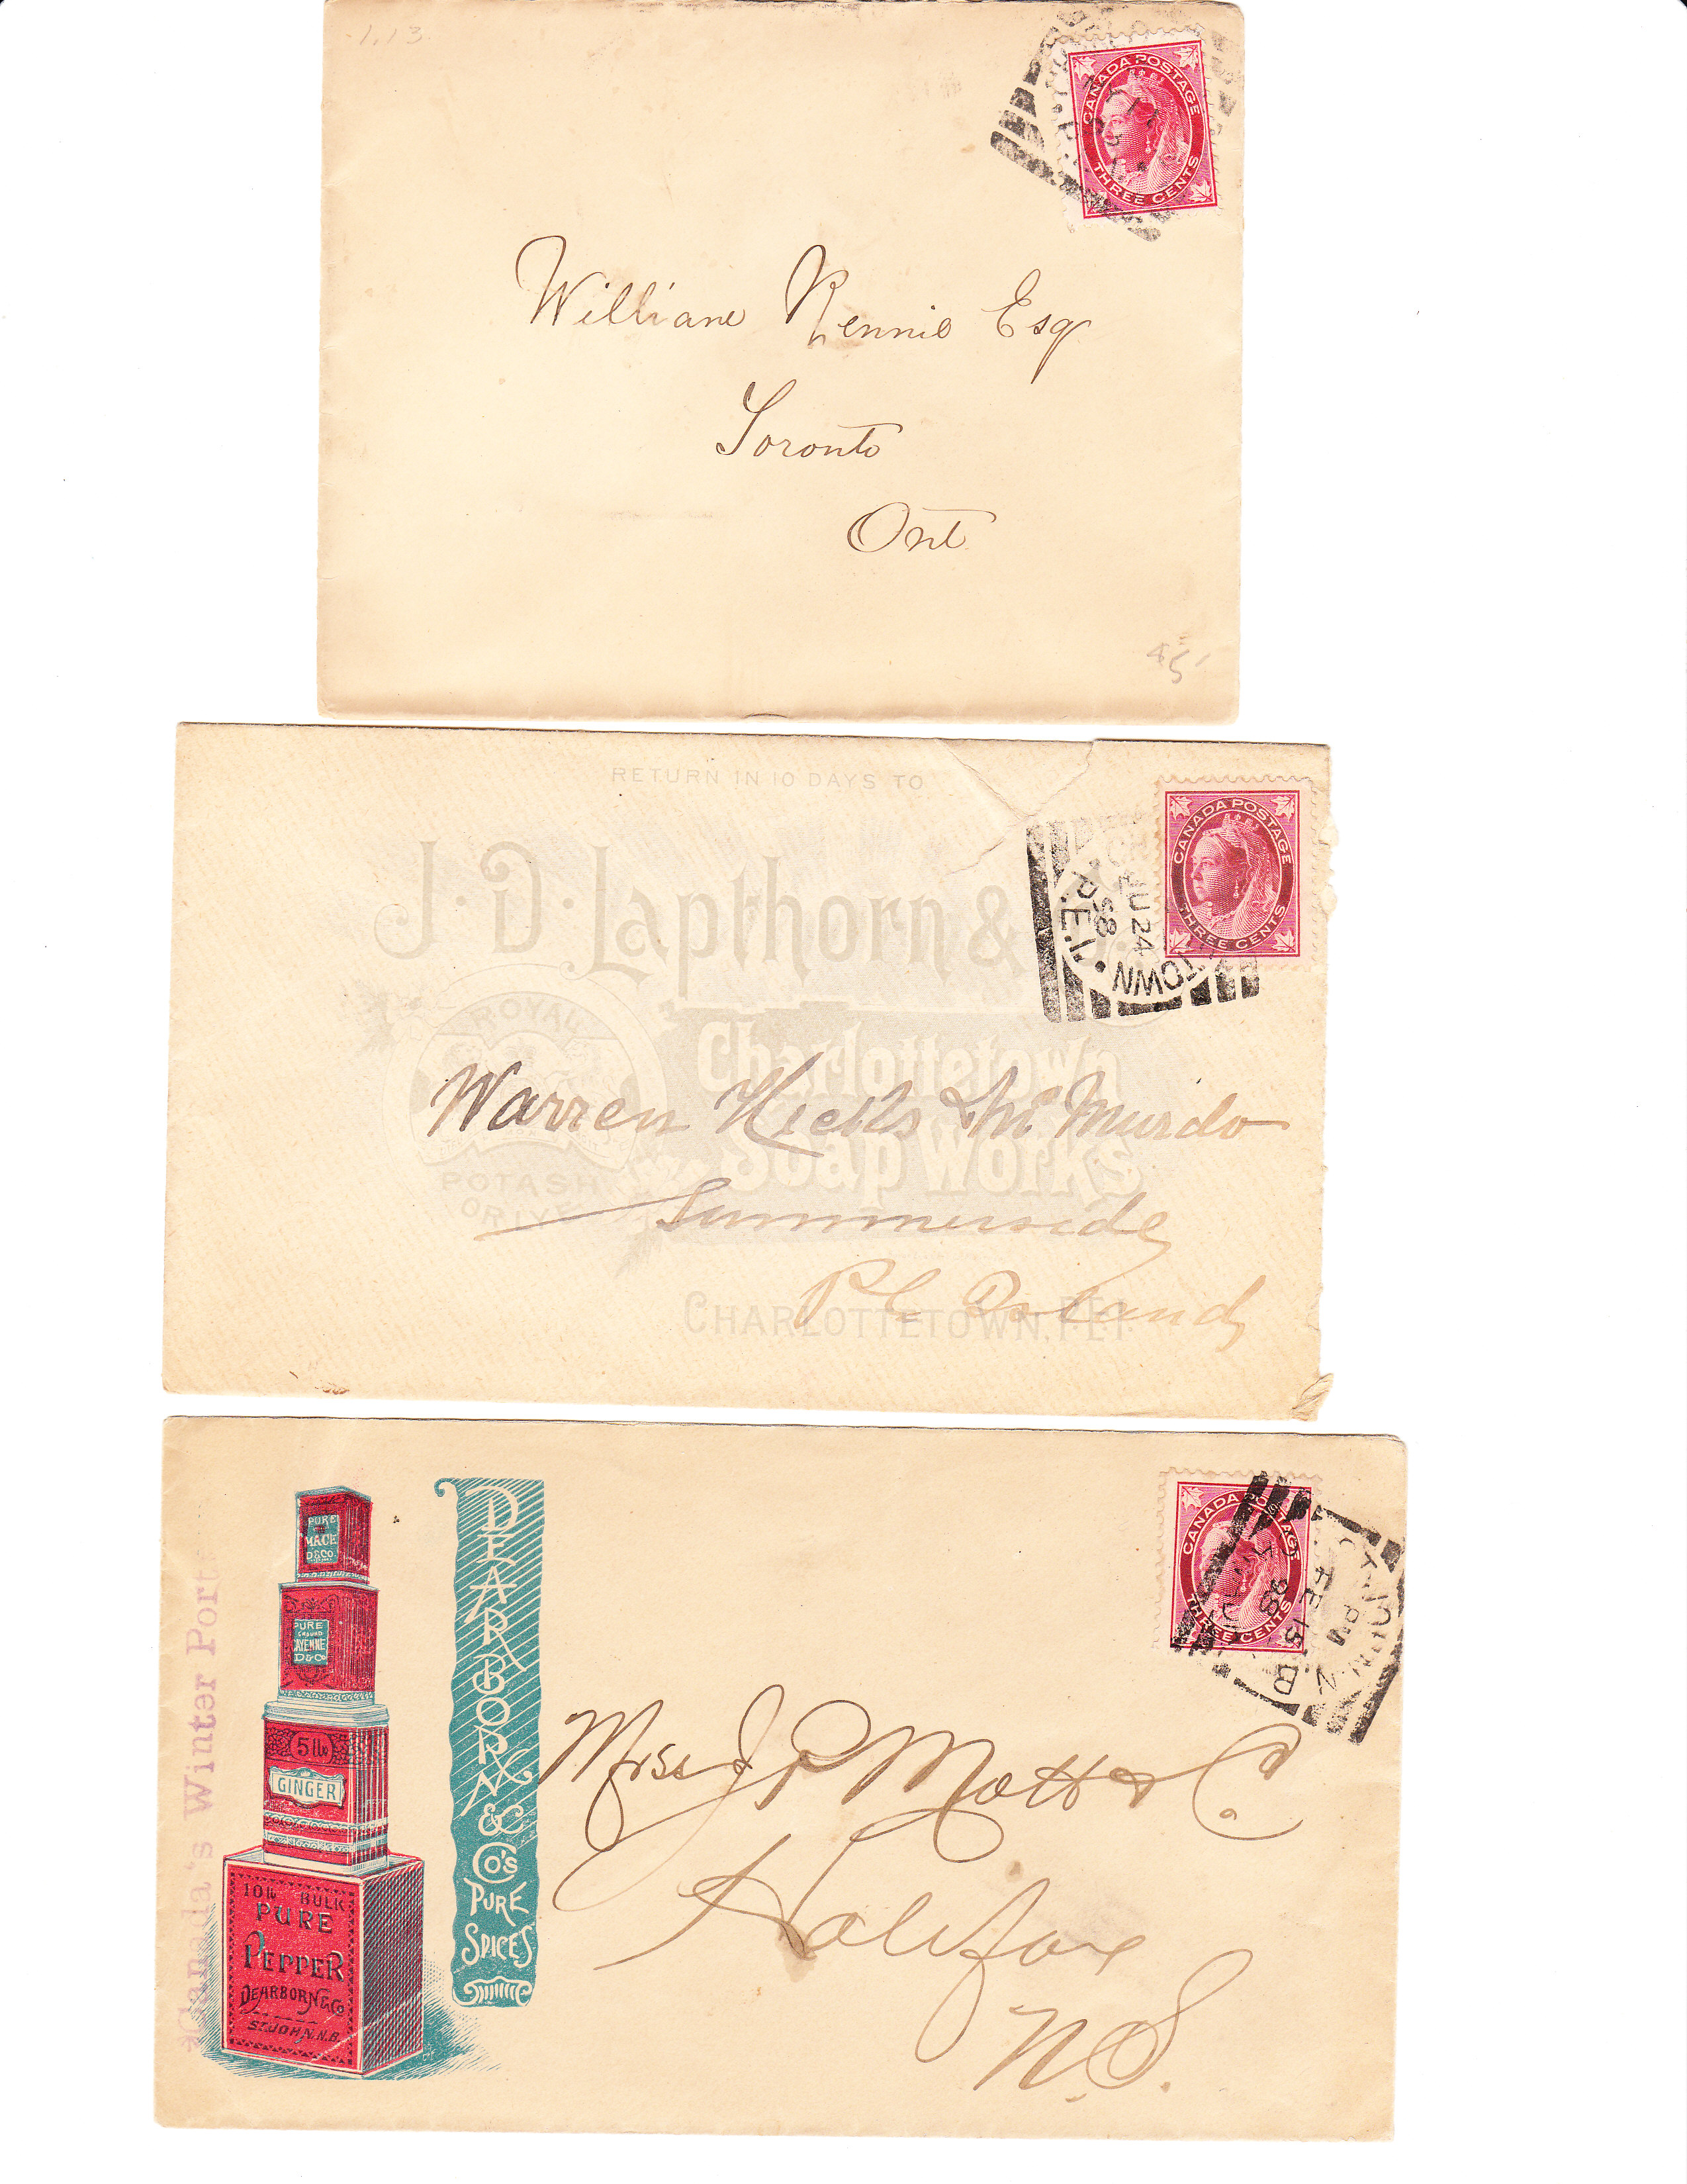 1.13
CANADA POSTAGE
THREE CENTS
William Rennie Esq
Toronto
Ont
RETURN IN 10 DAYS TO
J. D. Lapthorn &
CANADA POSTAGE
THREE CENTS
JU 24
98
TOWN
P.E.I.
ROYAL
Charlottetown
Soap Works
POTASH
OR LYE
Warren Hicks & McMurdo
Summerside
P E Island
CHARLOTTETOWN, P.E.I.
*Canada's Winter Port
PURE
MACE
D&CO.
PURE
GROUND
CAYENNE
D&Co
5 lbs
GINGER
10 lb BULK
PURE
PEPPER
DEARBORN & Co
ST. JOHN, N.B.
DEARBORN
& Co's
PURE
SPICES
CANADA POSTAGE
THREE CENTS
PM
FE 13
98
N.B
Mrss J P Mott & Co.
Halifax
N.S.